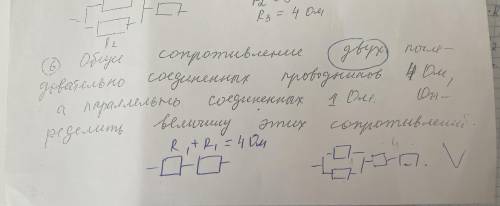 R2
R3 = 4 Ом
⑥ Общее сопротивление двух после-
довательно соединенных проводников 4 Ом,
а параллельно соединенных 1 Ом. Оп-
ределить величину этих сопротивлений.
R1 + R1 = 4 Ом